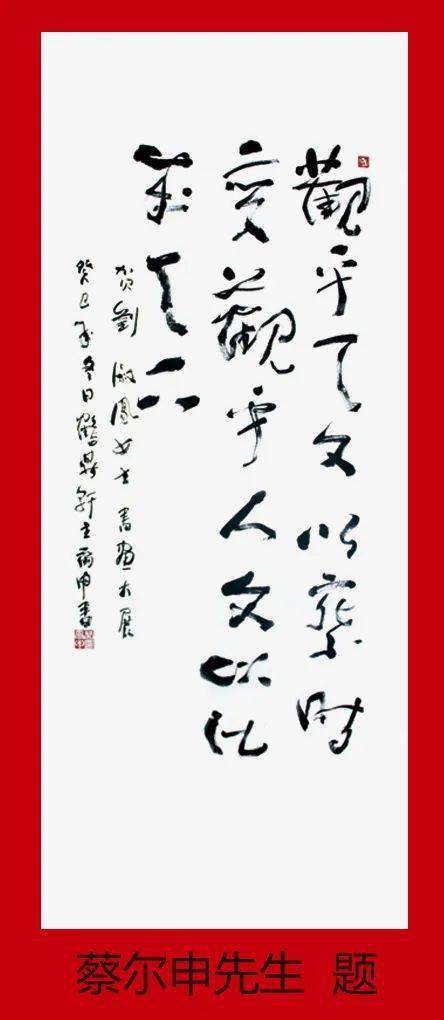 觀乎天文以察时
變觀乎人文以化
成天下
贺劉淑鳳女士書畫大展
癸巳年冬日鶴鼎軒主爾申書
蔡尔申先生 题